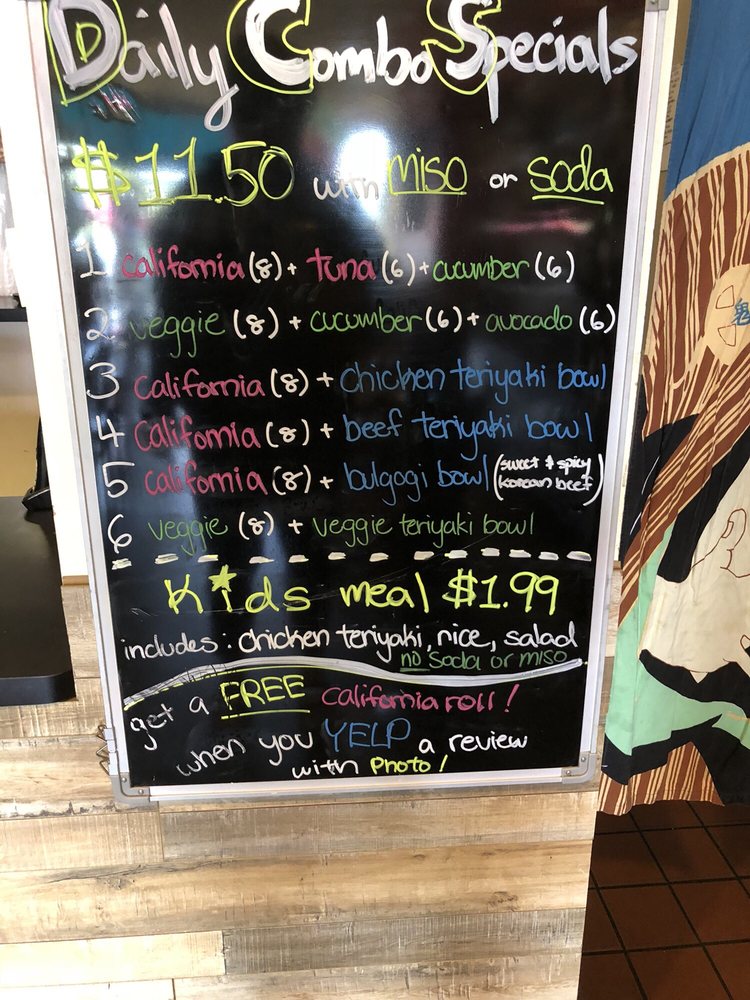 Daily Combo Specials
$11.50 with miso or soda
1 california (8) + tuna (6) + cucumber (6)
2 veggie (8) + cucumber (6) + avocado (6)
3 california (8) + chicken teriyaki bowl
4 california (8) + beef teriyaki bowl
5 california (8) + bulgogi bowl (sweet & spicy korean beef)
6 veggie (8) + veggie teriyaki bowl
Kids meal $1.99
includes: chicken teriyaki, rice, salad
no soda or miso
get a FREE california roll!
when you YELP a review
with Photo!